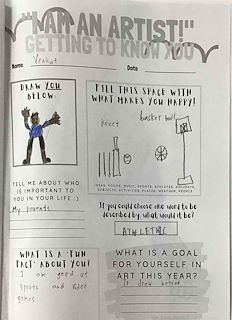 "I AM AN ARTIST!"
GETTING TO KNOW YOU
Name Venkat Date
DRAW YOU BELOW:
FILL THIS SPACE WITH WHAT MAKES YOU HAPPY!
cricket
basket ball
IDEAS: FOODS, MUSIC, SPORTS, ATHLETES, HOLIDAYS,
SUBJECTS, ACTIVITIES, PLACES, WEATHER, PEOPLE
TELL ME ABOUT WHO
IS IMPORTANT TO
YOU IN YOUR LIFE :)
My parents
If you could choose one word to
be described by, what would it be?
ATHLETIC
WHAT IS A "FUN
FACT" ABOUT YOU?
I am good at
sports and video
games
WHAT IS A GOAL
FOR YOURSELF IN
ART THIS YEAR?
to draw better